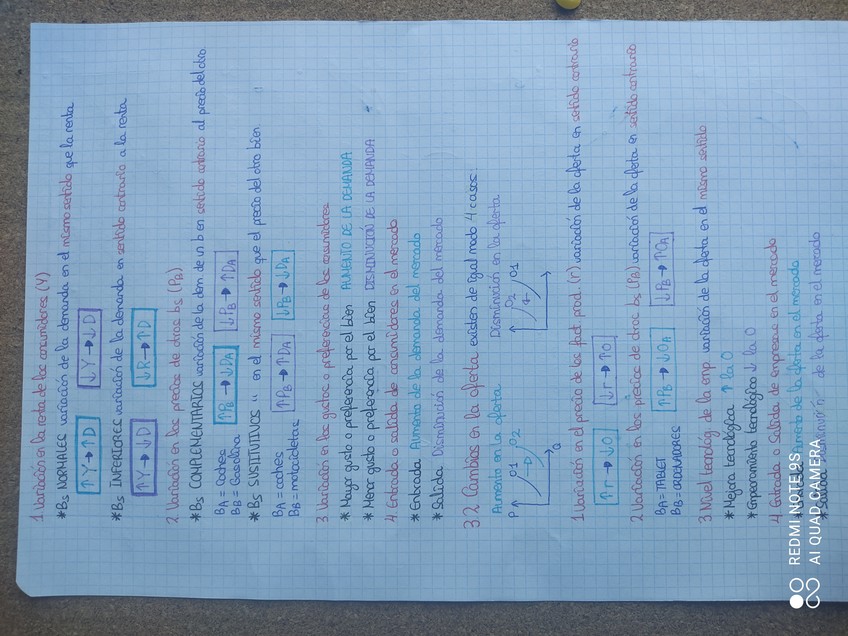 1 Variación en la renta de los consumidores (Y)
* Bs NORMALES variación de la demanda en el mismo sentido que la renta
↑Y→↑D ↓Y→↓D
* Bs INFERIORES variación de la demanda en sentido contrario a la renta
↑Y→↓D ↓R→↑D
2 Variación en los precios de otros bs (PB)
* Bs COMPLEMENTARIOS variación de la dem de un b en sentido contrario al precio del otro.
BA = Coches
BB = Gasolina
↑PB→↓DA ↓PB→↑DA
* Bs SUSTITUTIVOS " en el mismo sentido que el precio del otro bien.
BA = coches
BB = motocicletas
↑PB→↑DA ↓PB→↓DA
3 Variación en los gustos o preferencias de los consumidores
* Mayor gusto o preferencia por el bien AUMENTO DE LA DEMANDA
* Menor gusto o preferencia por el bien DISMINUCIÓN DE LA DEMANDA
4. Entrada o salida de consumidores en el mercado
* Entrada Aumento de la demanda del mercado
* Salida Disminución de la demanda del mercado
3 2 Cambios en la oferta existen de igual modo 4 casos:
Aumento en la oferta Disminución en la oferta
P O1 O2 Q
O2 O1
1 Variación en el precio de los fact prod. (r) variación de la oferta en sentido contrario
↑r→↓O ↓r→↑O
2 Variación en los precios de otros bs (PB) variación de la oferta en sentido contrario
BA = TABLET
BB = ORDENADORES
↑PB→↓OA ↓PB→↑OA
3 Nivel tecnológ de la emp variación de la oferta en el mismo sentido
* Mejora tecnológica ↑ la O
* Empeoramiento tecnológico ↓ la O
4 Entrada o Salida de empresas en el mercado
de la oferta en el mercado
de la oferta en el mercado
REDMI NOTE 9S
AI QUAD CAMERA